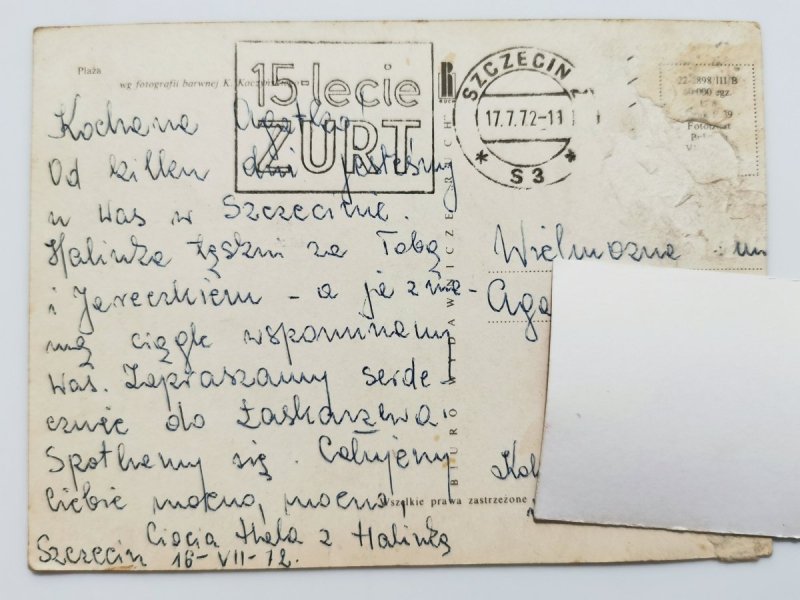 Plaża
wg fotografii barwnej K.
15-lecie
ZURT
RUCH
SZCZECIN 2
17.7.72-11
* S3 *
22-1898 III/B
000 egz.
Kochana
Od kilku dni jesteśmy
u Was w Szczecinie.
Halinka tęskni za Tobą
i Jareczkiem - a ja z ma-
mą ciągle wspominamy
Was. Zapraszamy serde-
cznie do Łaskarzewa.
Spotkamy się. Całujemy
Ciebie mocno, mocno,
Ciocia Hela z Halinką
Szczecin 16-VII-72.
BIURO WYDAWNICZE RUCH
Wielmożna
Aga
Wszelkie prawa zastrzeżone